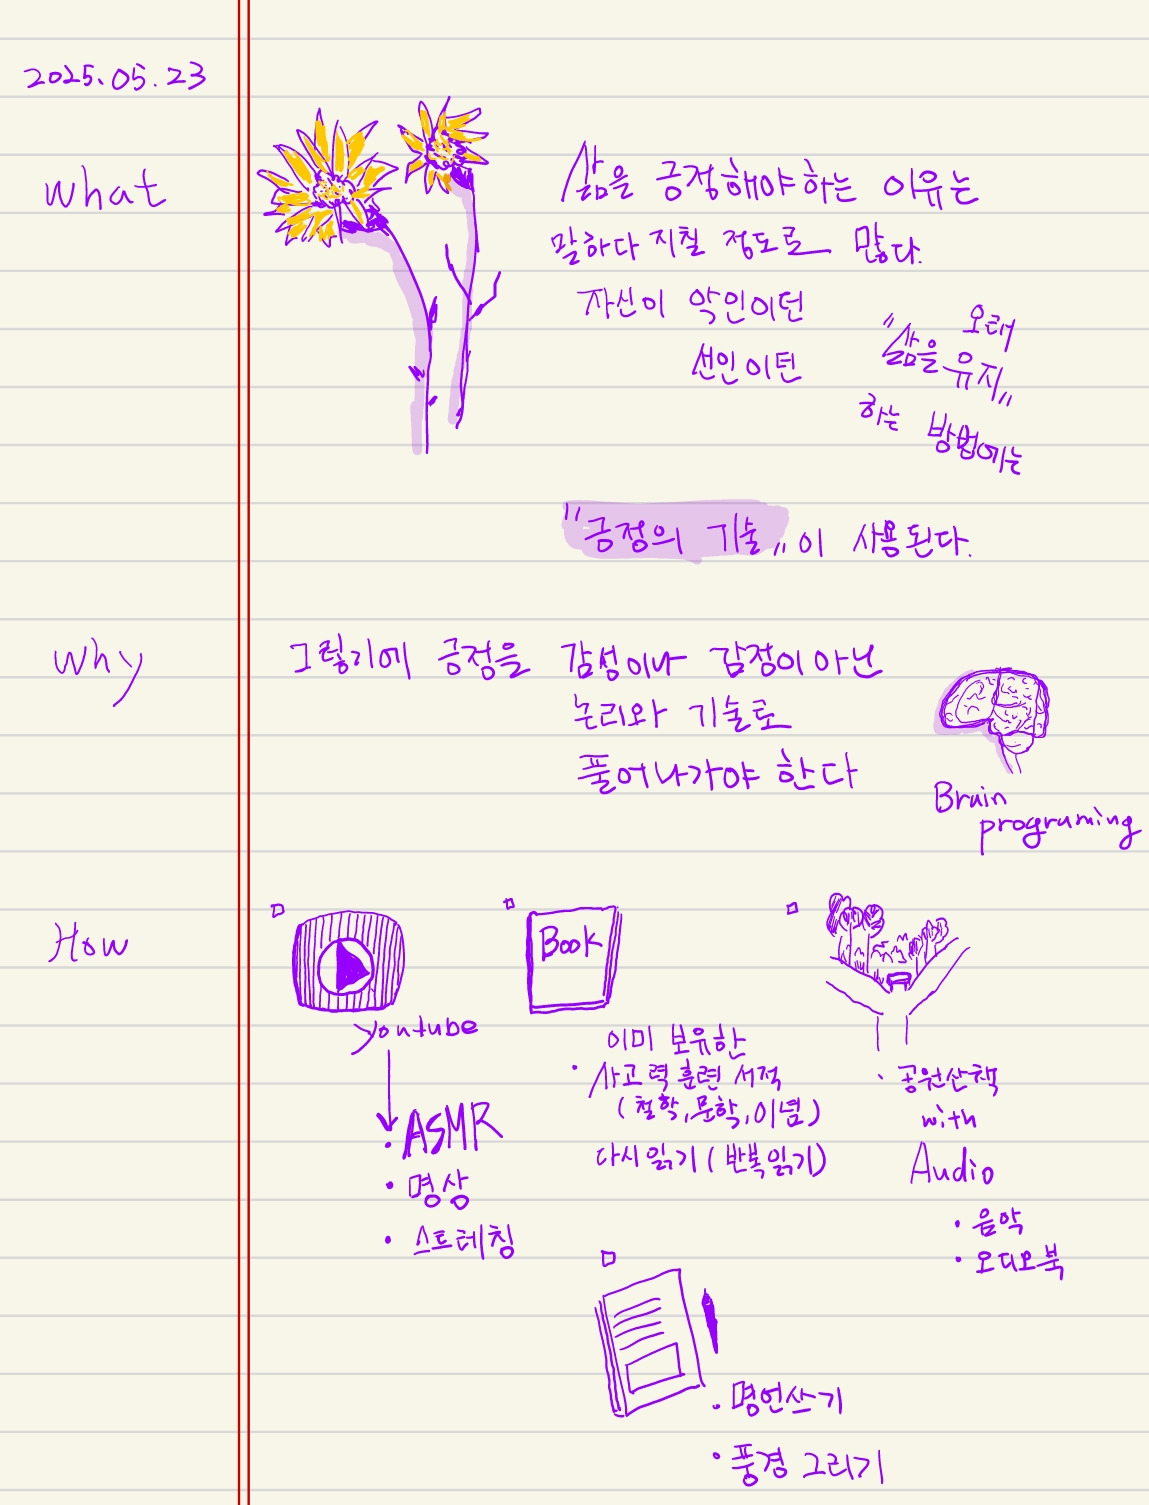 2025.05.23
What
삶을 긍정해야하는 이유는
말하다 지칠 정도로 많다.
자신이 악인이던
선인이던
오래
"삶을 유지"
하는 방법에는
"긍정의 기술"이 사용된다.
Why
그렇기에 긍정을 감성이나 감정이아닌
논리와 기술로
풀어나가야 한다
Brain
programing
How
Youtube
• ASMR
• 명상
• 스트레칭
Book
이미 보유한
• 사고력 훈련 서적
(철학,문학,이념)
다시읽기(반복읽기)
• 공원산책
with
Audio
• 음악
• 오디오북
• 명언쓰기
• 풍경 그리기